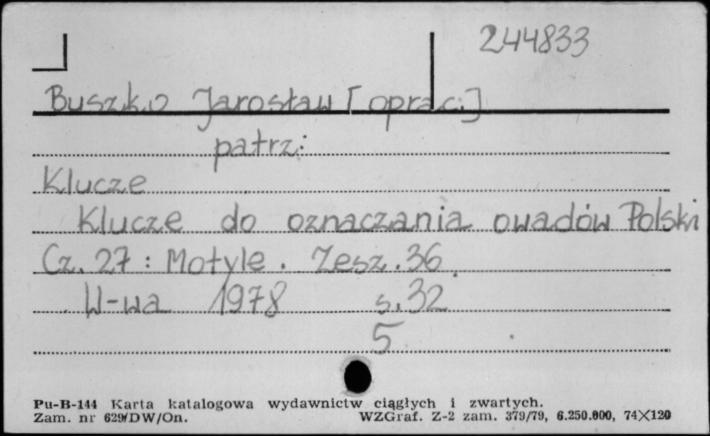 244833
Buszko Jarosław [oprac.]
patrz:
Klucze
Klucze do oznaczania owadów Polski
Cz. 27 : Motyle. Zesz. 36
W-wa 1978 s. 32
5
Pu-B-144 Karta katalogowa wydawnictw ciągłych i zwartych.
Zam. nr 629/DW/On. WZGraf. Z-2 zam. 379/79, 6.250.000, 74X120